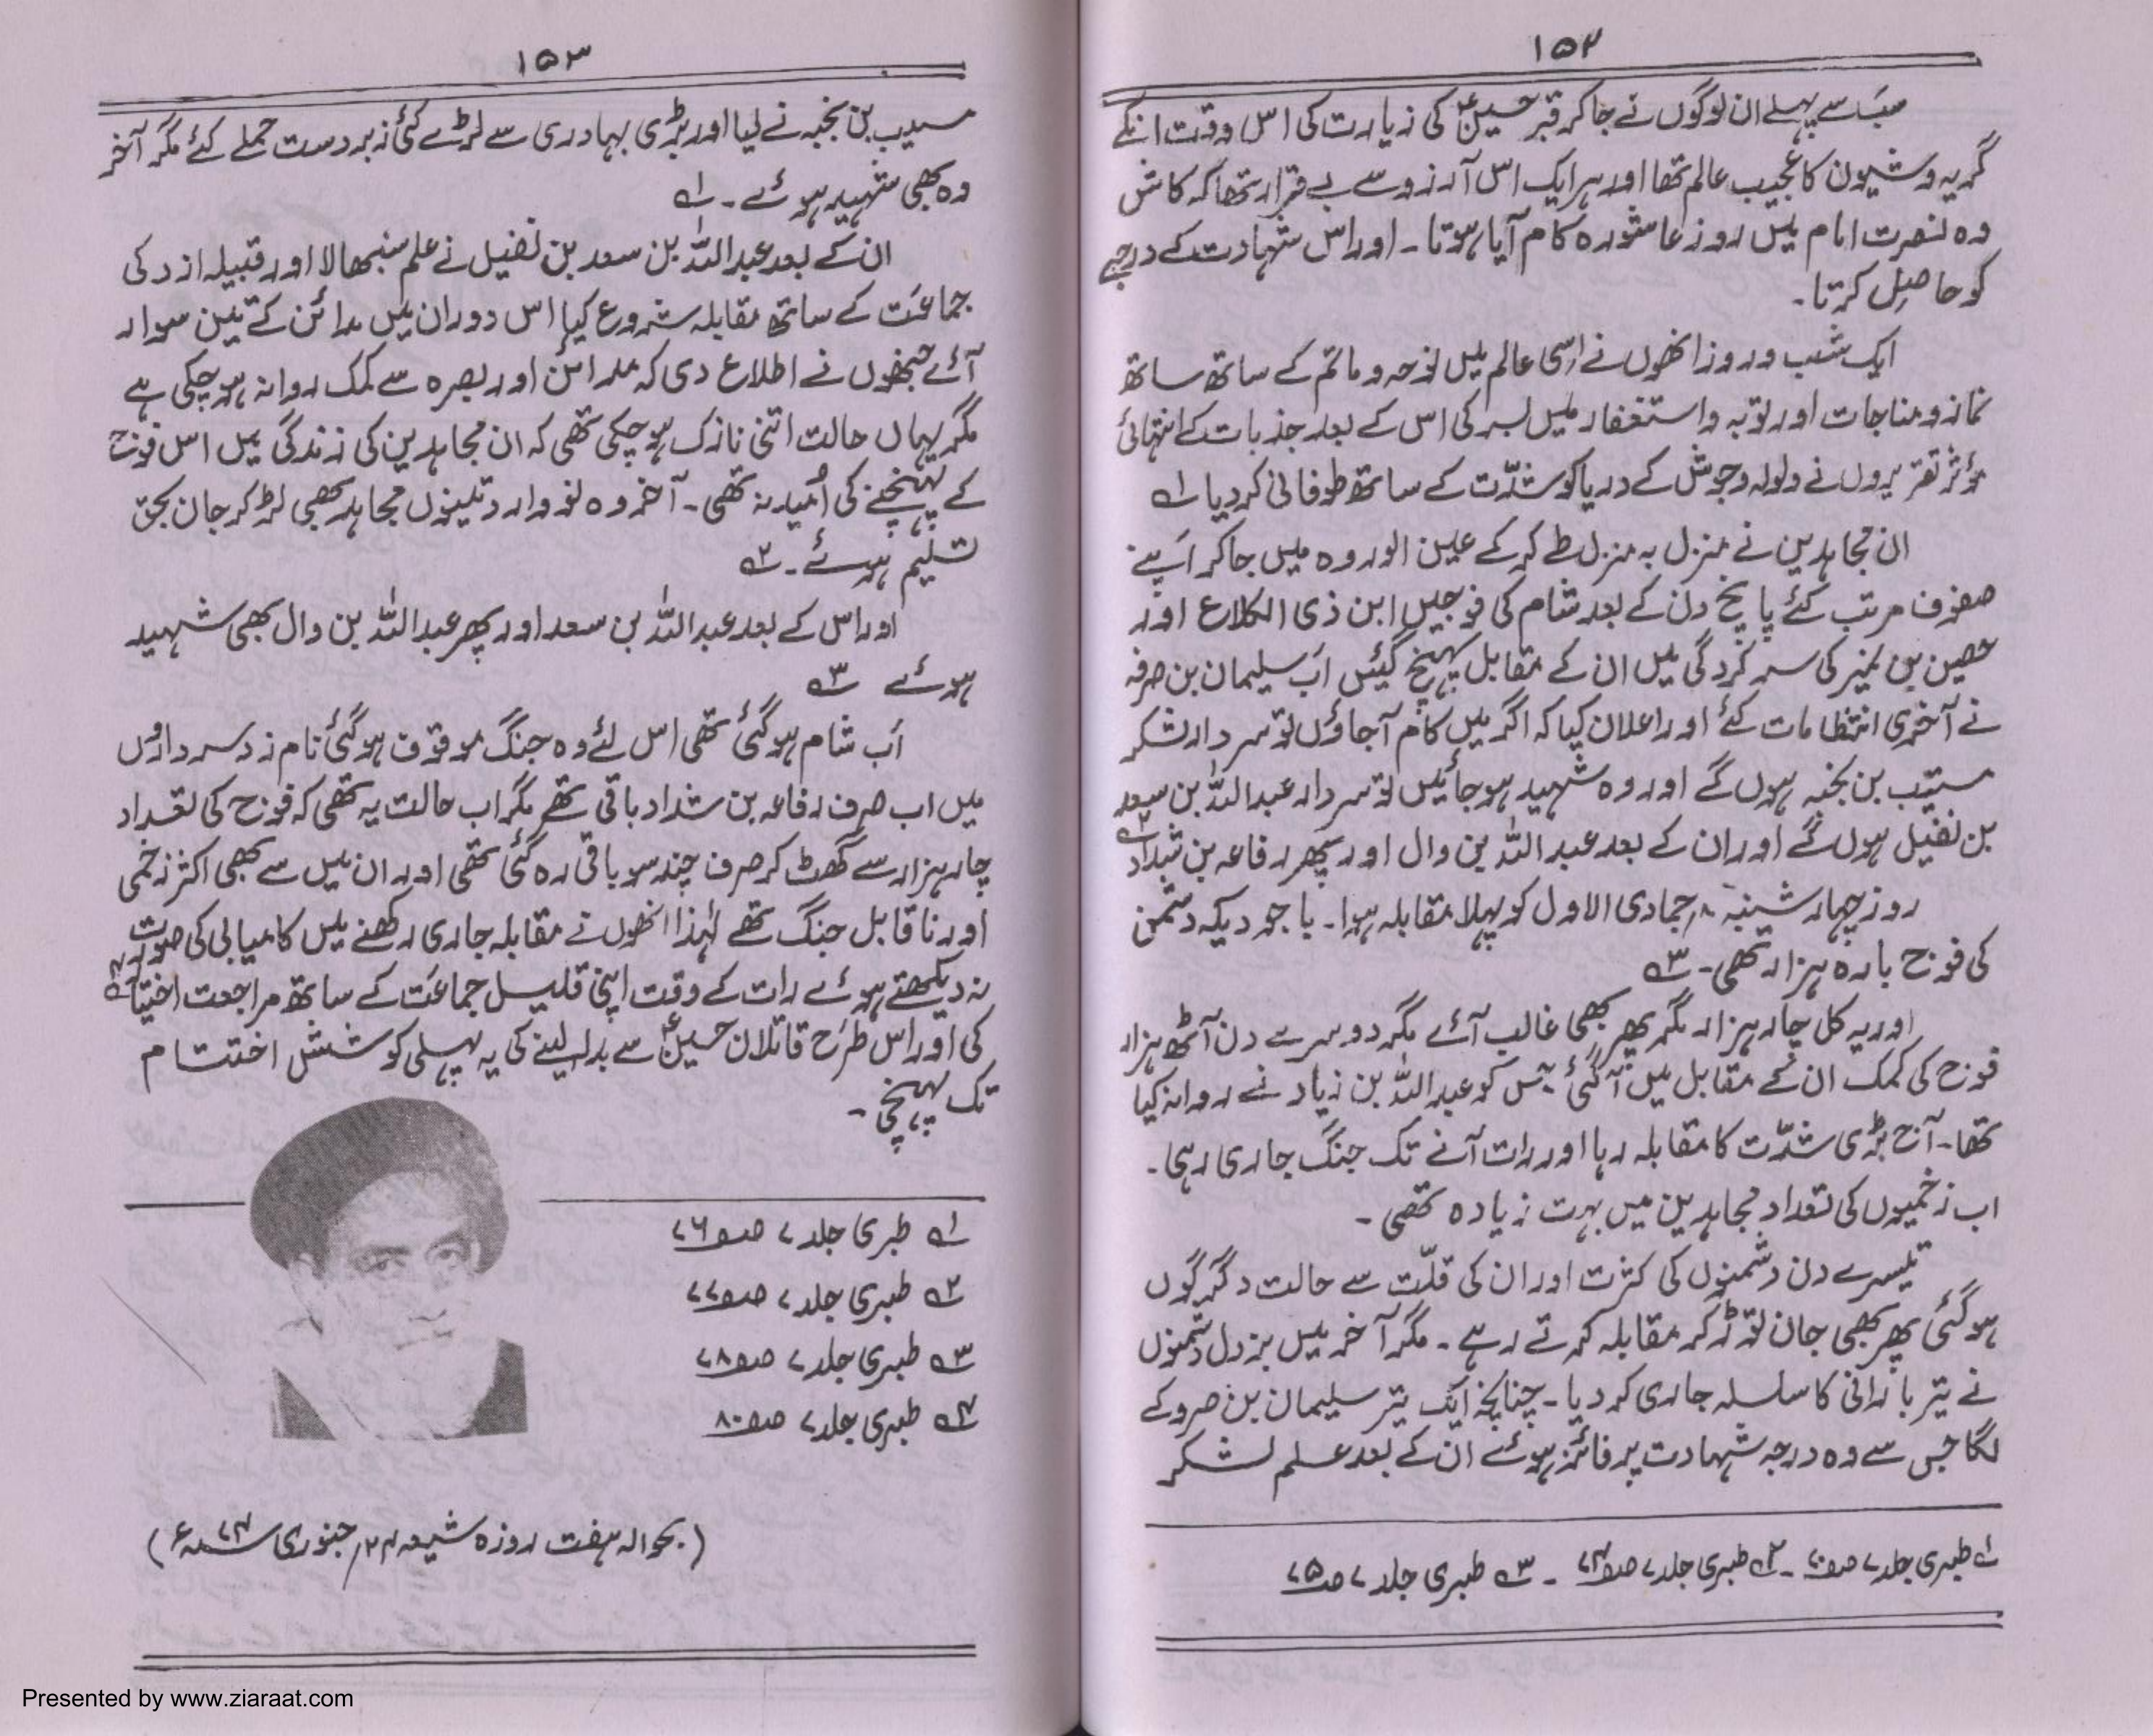 ۱۵۲
سب سے پہلے ان لوگوں نے جا کر قبر حسینؑ کی زیارت کی اس وقت انکے
گریہ و شیون کا عجیب عالم تھا اور ہر ایک اس آرزو سے بے قرار تھا کہ کاش
وہ نصرت امام میں روز عاشورہ کام آیا ہوتا ۔ اور اس شہادت کے درجے
کو حاصل کرتا ۔
ایک شب و روز انھوں نے اسی عالم میں نوحہ و ماتم کے ساتھ ساتھ
نماز و مناجات اور توبہ و استغفار میں بسر کی اس کے بعد جذبات کے انتہائی
مؤثر تقریروں نے ولولہ و جوش کے دریا کو شدّت کے ساتھ طوفانی کر دیا ۱؎
ان مجاہدین نے منزل بہ منزل طے کر کے عین الوردہ میں جا کر اپنے
صفوف مرتب کئے پانچ دن کے بعد شام کی فوجیں ابن ذی الکلاع اور
حصین بن نمیر کی سر کردگی میں ان کے مقابل پہنچ گئیں اب سلیمان بن صرفہ
نے آخری انتظامات کئے اور اعلان کیا کہ اگر میں کام آ جاؤں تو سردار لشکر
مسیّب بن نجبہ ہوں گے اور وہ شہید ہو جائیں تو سردار عبداللہ بن سعد
بن نفیل ہوں گے اور ان کے بعد عبداللہ بن وال اور پھر رفاعہ بن شداد ۲؎
روز چہار شنبہ ۸؍ جمادی الاول کو پہلا مقابلہ ہوا ۔ باجودیکہ دشمن
کی فوج بارہ ہزار تھی ۔ ۳؎
اور یہ کل چار ہزار مگر پھر بھی غالب آئے مگر دوسرے دن آٹھ ہزار
فوج کی کمک ان کے مقابل میں آ گئی جس کو عبداللہ بن زیاد نے روانہ کیا
تھا ۔ آج بڑی شدّت کا مقابلہ رہا اور رات آنے تک جنگ جاری رہی ۔
اب زخمیوں کی تعداد مجاہدین میں بہت زیادہ تھی ۔
تیسرے دن دشمنوں کی کثرت اور ان کی قلّت سے حالت دگرگوں
ہو گئی پھر بھی جان توڑ کر مقابلہ کرتے رہے ۔ مگر آخر میں بزدل دشمنوں
نے تیر بارانی کا سلسلہ جاری کر دیا ۔ چنانچہ ایک تیر سلیمان بن صرو کے
لگا جس سے وہ درجہ شہادت پر فائز ہوئے ان کے بعد علم لشکر
۱؎ طبری جلد ۷ صـ۷۰ ۔ ۲؎ طبری جلد ۷ صـ۷۴ ۔ ۳؎ طبری جلد ۷ صـ۷۵
۱۵۳
مسیب بن نجبہ نے لیا اور بڑی بہادری سے لڑے کئی زبردست حملے کئے مگر آخر
وہ بھی شہید ہوئے ۔ ۱؎
ان کے بعد عبداللہ بن سعد بن نفیل نے علم سنبھالا اور قبیلہ ازد کی
جماعت کے ساتھ مقابلہ شروع کیا اس دوران میں مدائن کے تین سوار
آئے جنھوں نے اطلاع دی کہ مدائن اور بصرہ سے کمک روانہ ہو چکی ہے
مگر یہاں حالت اتنی نازک ہو چکی تھی کہ ان مجاہدین کی زندگی میں اس فوج
کے پہنچنے کی اُمید نہ تھی ۔ آخر وہ نووارد تینوں مجاہد بھی لڑ کر جان بحق
تسلیم ہوئے ۔ ۲؎
اور اس کے بعد عبداللہ بن سعد اور پھر عبداللہ بن وال بھی شہید
ہوئے ۳؎
اب شام ہو گئی تھی اس لئے وہ جنگ موقوف ہو گئی نام زد سرداروں
میں اب صرف رفاعہ بن شداد باقی تھے مگر اب حالت یہ تھی کہ فوج کی تعداد
چار ہزار سے گھٹ کر صرف چند سو باقی رہ گئی تھی اور ان میں سے بھی اکثر زخمی
اور ناقابل جنگ تھے لہٰذا انھوں نے مقابلہ جاری رکھنے میں کامیابی کی صورت
نہ دیکھتے ہوئے رات کے وقت اپنی قلیل جماعت کے ساتھ مراجعت اختیار ۴؎
کی اور اس طرح قاتلان حسینؑ سے بدلہ لینے کی یہ پہلی کوشش اختتام
تک پہنچی ۔
۱؎ طبری جلد ۷ صـ۷۶
۲؎ طبری جلد ۷ صـ۷۷
۳؎ طبری جلد ۷ صـ۷۸
۴؎ طبری جلد ۷ صـ۸۰
(بحوالہ ہفت روزہ شیعہ ۲۴؍ جنوری ۷۴ء)
Presented by www.ziaraat.com